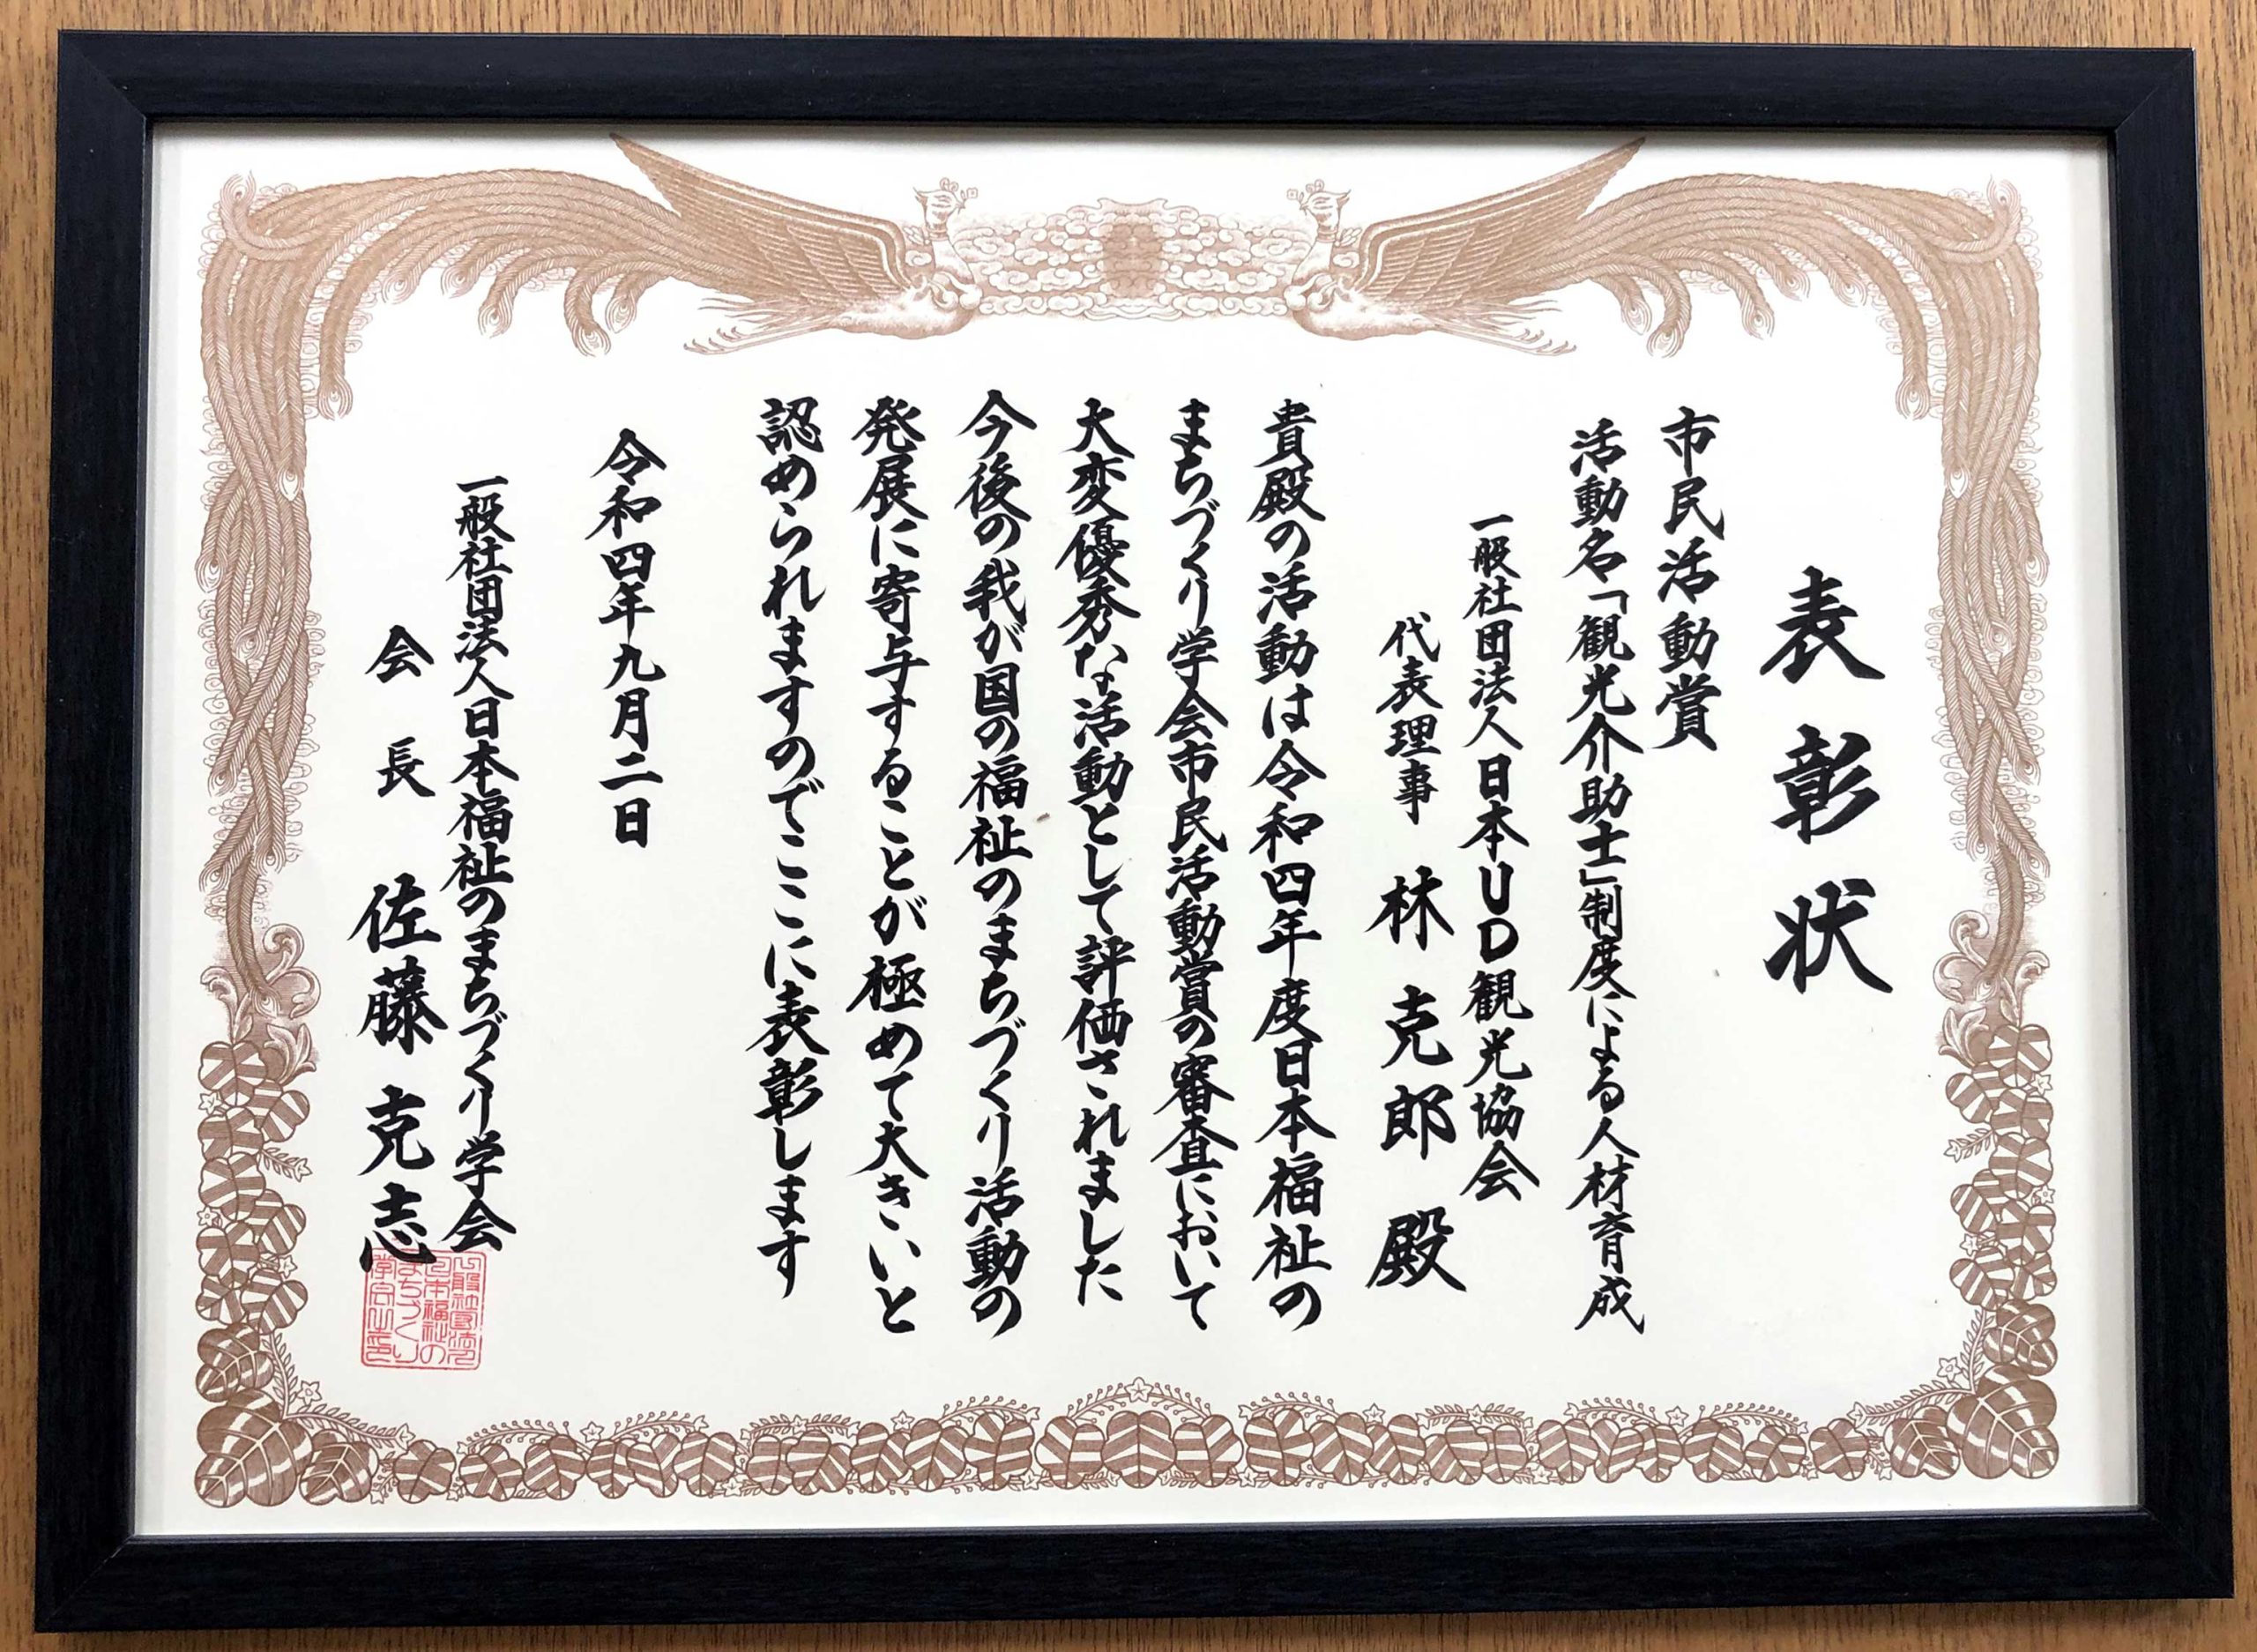 表彰状
市民活動賞
活動名「観光介助士」制度による人材育成
一般社団法人日本UD観光協会
代表理事 林 克郎 殿
貴殿の活動は令和四年度日本福祉の
まちづくり学会市民活動賞の審査において
大変優秀な活動として評価されました
今後の我が国の福祉のまちづくり活動の
発展に寄与することが極めて大きいと
認められますのでここに表彰します
令和四年九月二日
一般社団法人日本福祉のまちづくり学会
会長 佐藤克志
一般社団法人
日本福祉の
まちづくり
学会之印